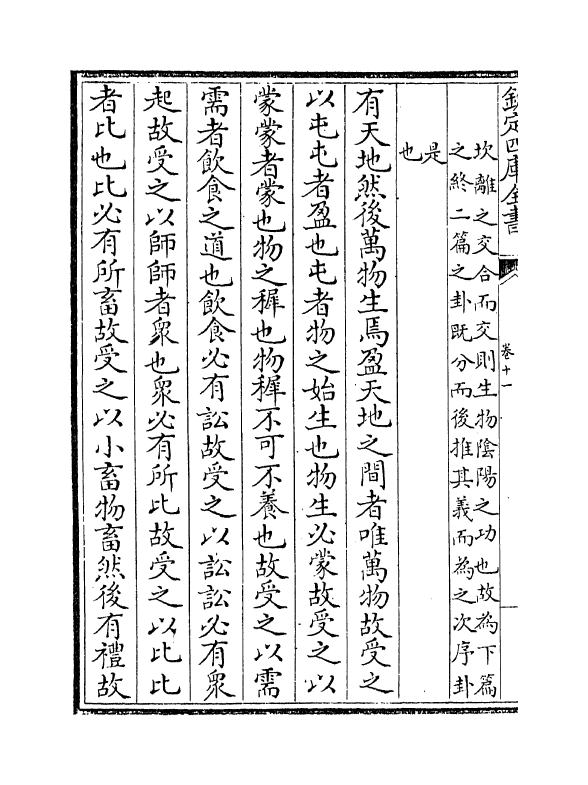 欽定四庫全書
卷十一
坎離之交合而交則生物陰陽之功也故為下篇
之終二篇之卦既分而後推其義而為之次序卦
是
也
有天地然後萬物生焉盈天地之間者唯萬物故受之
以屯屯者盈也屯者物之始生也物生必蒙故受之以
蒙蒙者蒙也物之穉也物穉不可不養也故受之以需
需者飲食之道也飲食必有訟故受之以訟訟必有衆
起故受之以師師者衆也衆必有所比故受之以比比
者比也比必有所畜故受之以小畜物畜然後有禮故